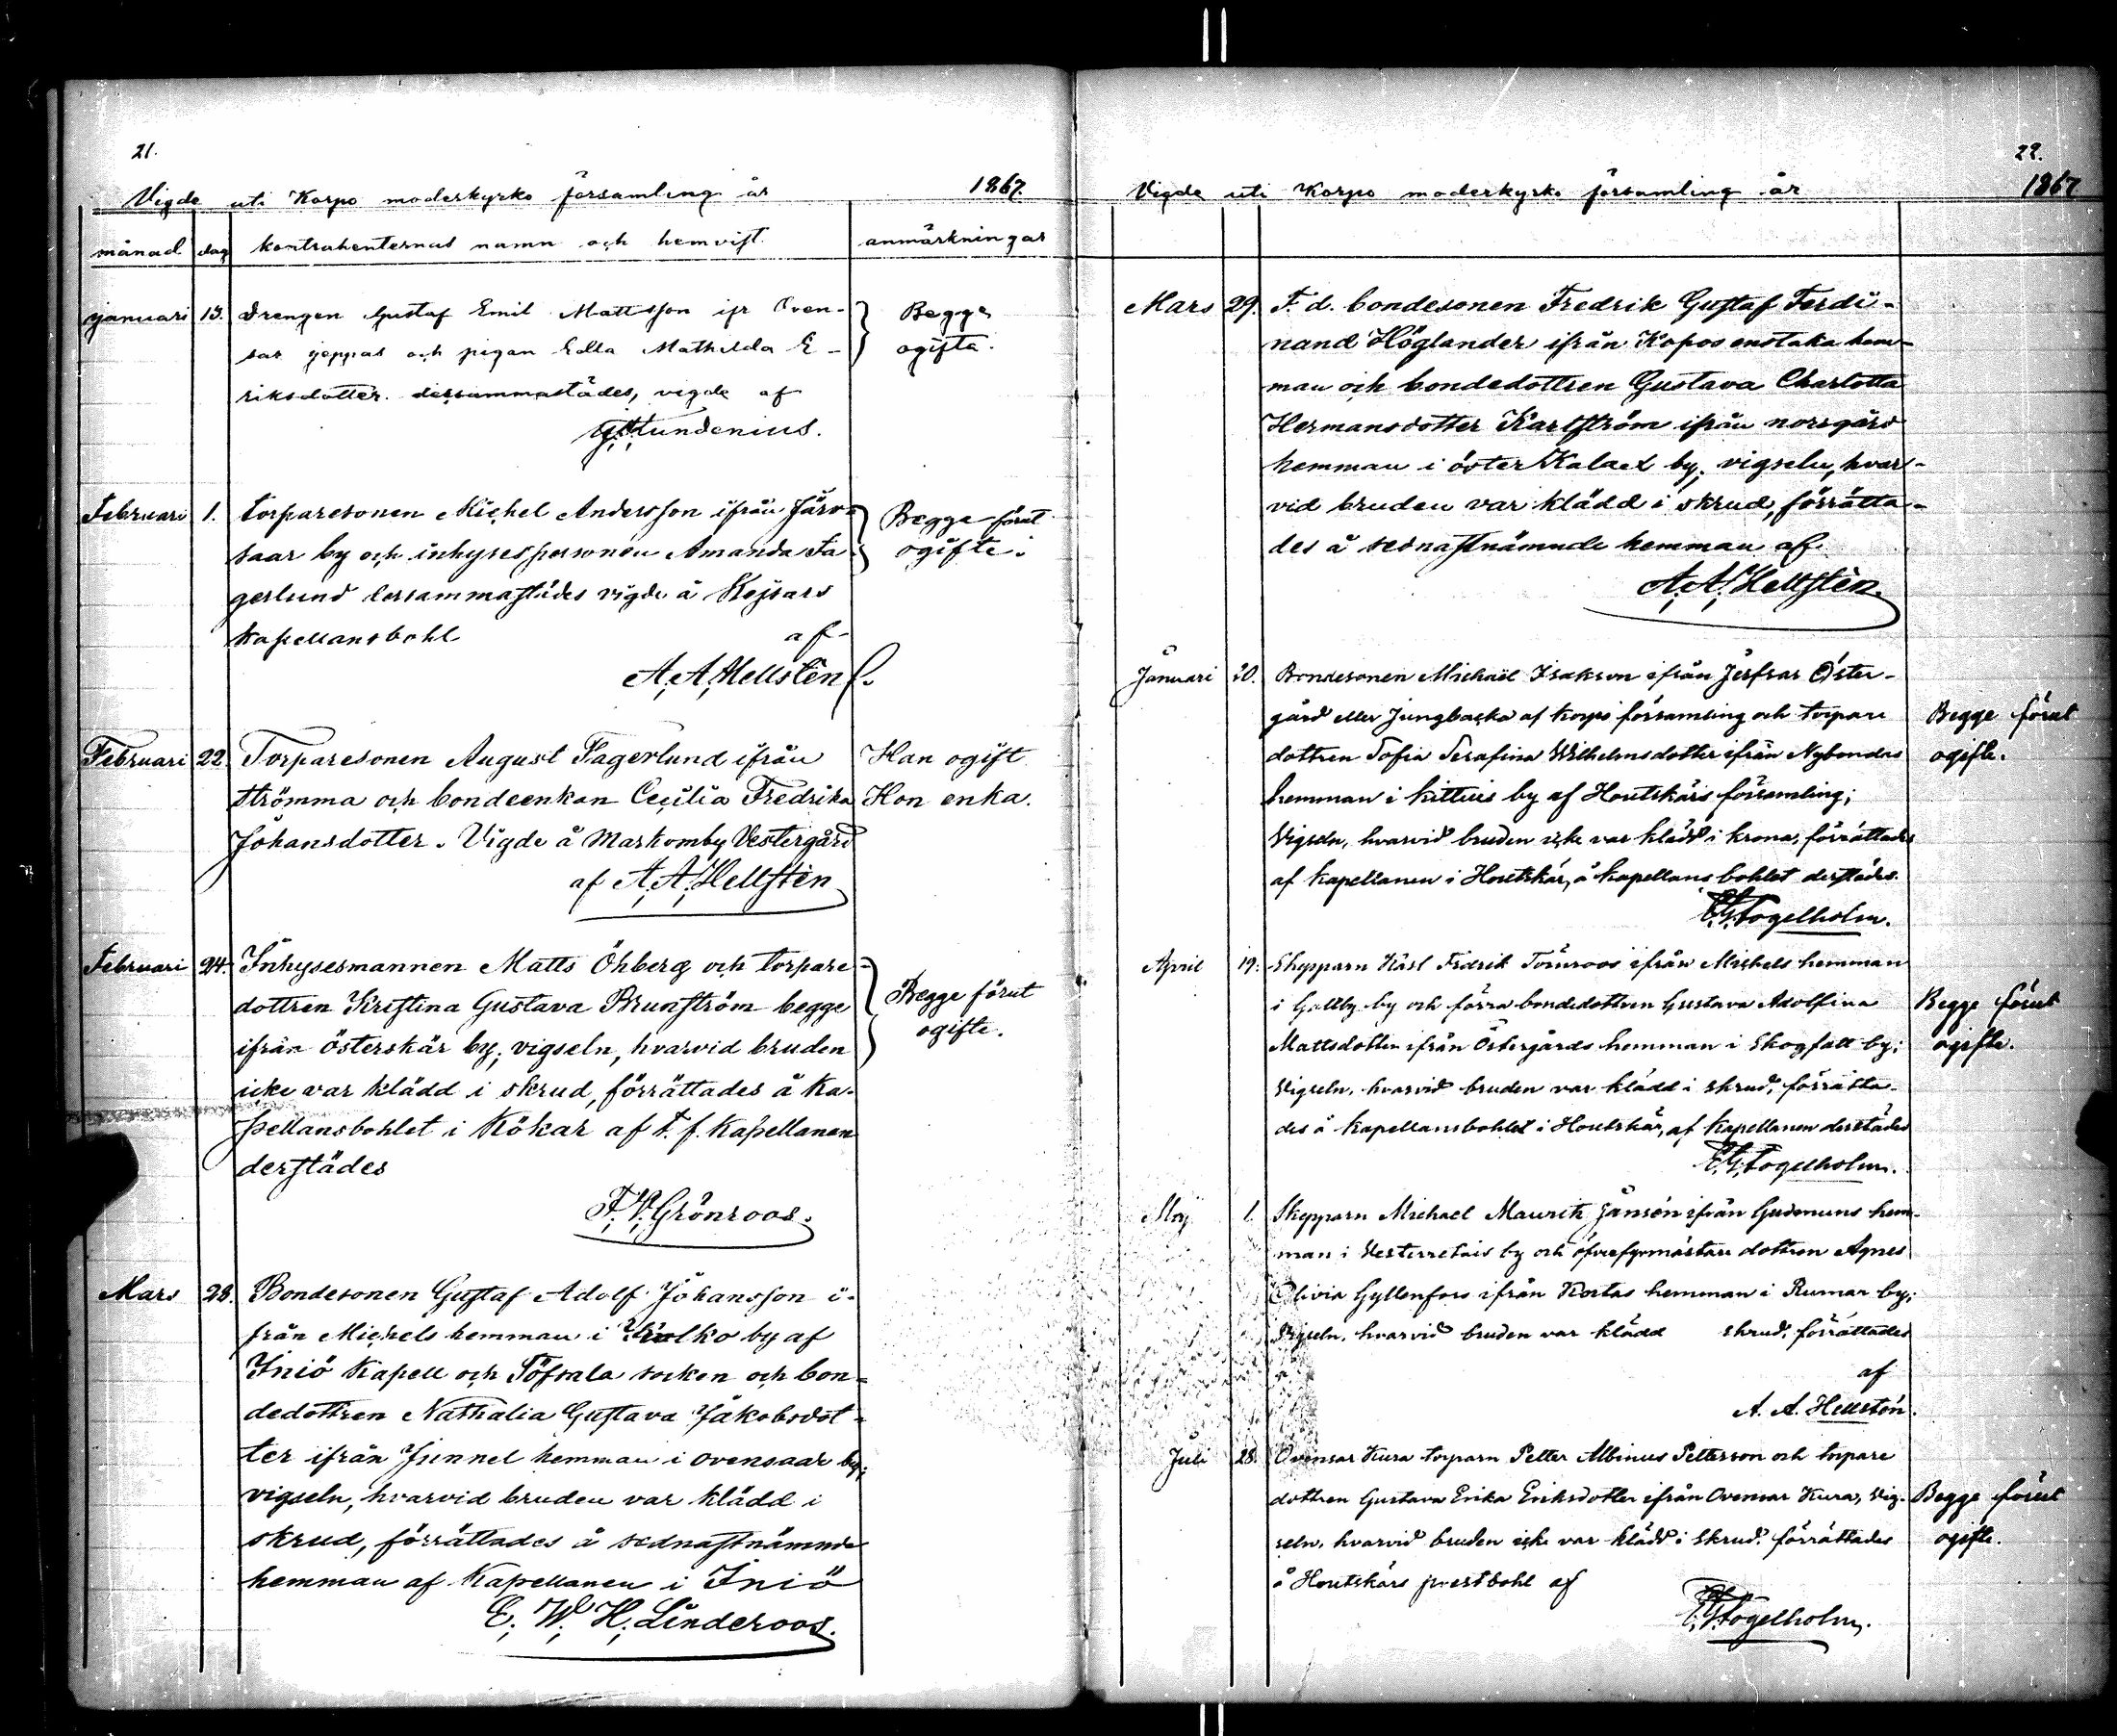 21.
Vigde uti Korpo moderkyrko församling år 1867.
månad dag kontrahenternas namn och hemvist. anmärkningar
januari 13. Drengen Gustaf Emil Mattsson ifr Oven- Begge
sar joppas och pigan Edla Mathilda E- ogifta.
riksdotter dersammastädes, vigde af
Lundenius.
Februari 1. torparesonen Michel Andersson ifrån Järv- Begge förut
saar by och inhysespersonen Amanda Fa ogifte.
gerlund dersammastädes vigde å Kojsars
kapellansbohl af
A. A. Hellstén
Februari 22. Torparesonen August Fagerlund ifrån Han ogift
Strömma och bondeenkan Cecilia Fredrika Hon enka.
Johansdotter. Vigde å Markomby Vestergård
af A. A. Hellstén
Februari 24. Inhysesmannen Matts Öhberg och torpare-
dottren Kristina Gustava Brunström begge Begge förut
ifrån österskär by; vigseln, hvarvid bruden ogifte.
icke var klädd i skrud, förrättades å ka-
pellansbohlet i Kökar af t. f. kapellanen
derstädes
F. V. Grönroos.
Mars 28. Bondesonen Gustaf Adolf Johansson i-
från Michels hemman i Kolko by af
Iniö Kapell och Töfsala socken och bon-
dedottren Nathalia Gustava Jakobsdot-
ter ifrån Junnel hemman i ovensaar by;
vigseln, hvarvid bruden var klädd i
skrud, förrättades å sednastnämnde
hemman af Kapellanen i Iniö
E. W. H. Linderoos.
22.
Vigde uti Korpo moderkyrko församling år 1867
Mars 29. F. d. bondesonen Fredrik Gustaf Ferdi-
nand Höglander ifrån Kopos enstaka hem-
man och bondedottren Gustava Charlotta
Hermansdotter Karlström ifrån norrgård
hemman i öster Kalax by; vigseln, hvar-
vid bruden var klädd i skrud, förrätta-
des å sednastnämnde hemman af
A. A. Hellstén.
Januari 20. Bondesonen Michaël Isakson ifrån Jerfsar Öster-
gård eller Jungbacka af Korpo församling och torpare Begge förut
dottren Sofia Serafina Wilhelmsdotter ifrån Nybondas ogifte.
hemman i Kittuis by af Houtskärs församling;
Vigseln, hvarvid bruden icke var klädd i krona, förrättades
af kapellanen i Houtskär, å kapellansbohlet derstädes.
E. G. Fogelholm.
April 19. Skepparn Karl Fredrik Törnroos ifrån Michels hemman
i Galtby by och förra bondedottren Gustava Adolfina Begge förut
Mattsdotter ifrån Östergårds hemman i Skogfall by; ogifte.
Vigseln, hvarvid bruden var klädd i skrud, förrätta-
des å kapellansbohlet i Houtskär, af kapellanen derstädes
E. G. Fogelholm.
Maj 1. Skepparn Michael Mauritz Jansén ifrån Gudmuns hem-
man i Vesterretais by och öfverfyrmästare dottren Agnes
Olivia Gyllenfors ifrån Kortas hemman i Rumar by;
Vigseln, hvarvid bruden var klädd skrud, förrättades
å
af
A. A. Hellstén.
Juli 28. Ovensar Kura torparn Petter Albinus Petterson och torpare
dottren Gustava Erika Eriksdotter ifrån Ovensar Kura, Vig- Begge förut
seln, hvarvid bruden icke var klädd i skrud, förrättades ogifte.
å Houtskärs prestbohl af
E. G. Fogelholm.